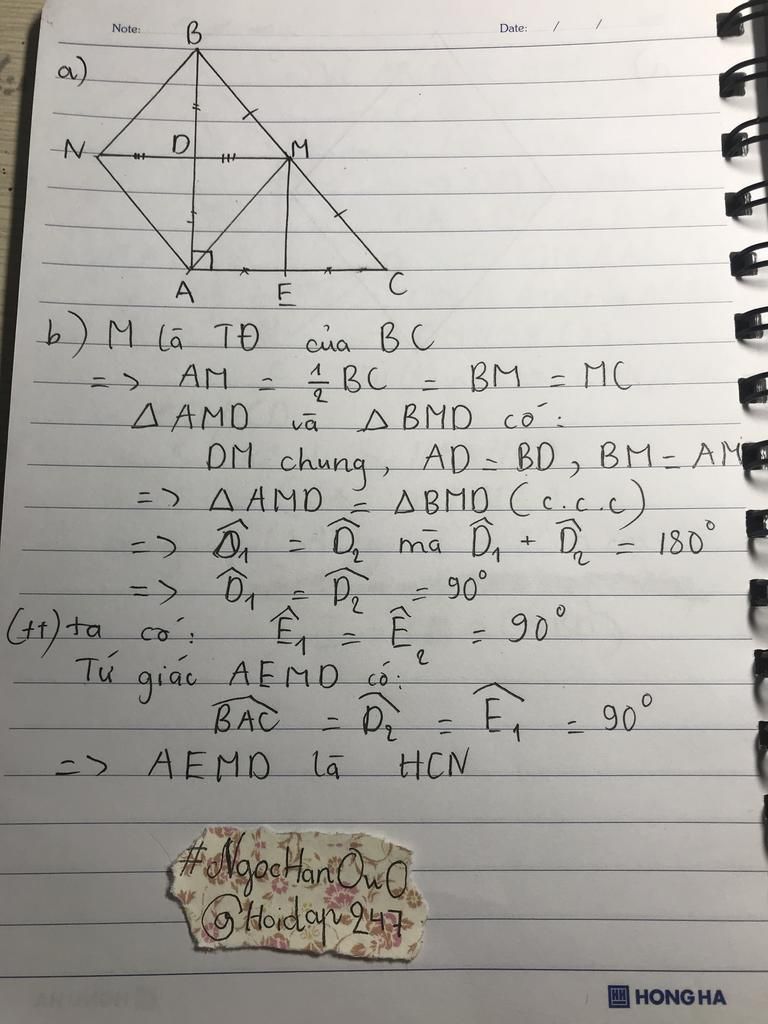 Note:
Date: / /
a)
B
N
D
M
A
E
C
b) M là TĐ của BC
=> AM = 1/2 BC = BM = MC
Δ AMD và Δ BMD có:
DM chung, AD = BD, BM = AM
=> Δ AMD = Δ BMD (c.c.c)
=> D̂₁ = D̂₂ mà D̂₁ + D̂₂ = 180°
=> D̂₁ = D̂₂ = 90°
(tt) ta có: Ê₁ = Ê₂ = 90°
Tứ giác AEMD có:
B̂AC = D̂₂ = Ê₁ = 90°
=> AEMD là HCN
#NgocHanOuO
@Hoidap247
HONG HA